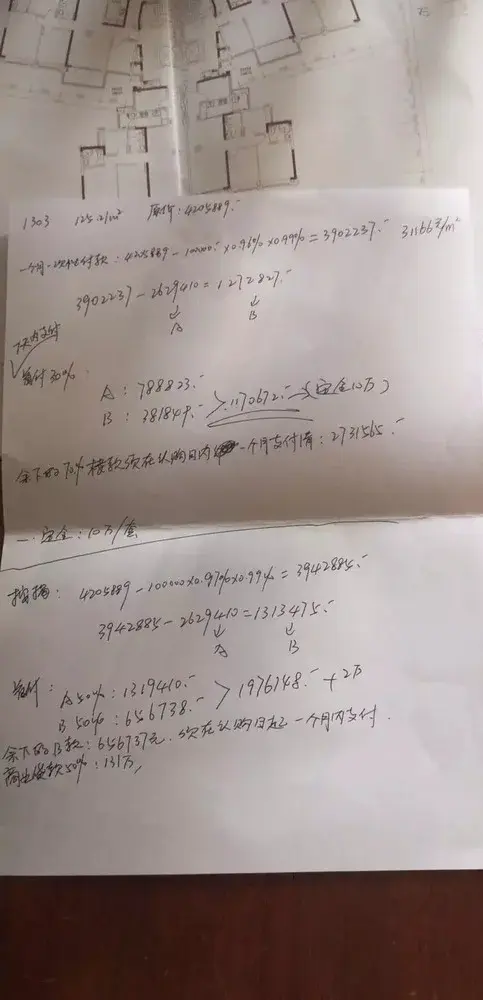 1303 125.21m² 原价：4205889.-
一个月一次性付款：4205889-100000.-×0.96%×0.99%=3902237.- 31166元/m²
3902237-2629410=1272827.-
↓ ↓
A B
7天内支付
首付30%.
A：788823.-
B：381849.- >1170672.-（定金10万）
余下的70%楼款须在认购日内一个月支付清：2731565.-
一.定金：10万/套
按揭：4205889-100000×0.97%×0.99%=3942885.-
3942885-2629410=1313475.-
↓ ↓
A B
首付：A 50%：1319410.-
B 50%：656738.- >1976148.-+2万
余下的B款：656737元.须在认购日起一个月内支付.
商业贷款50%：131万,